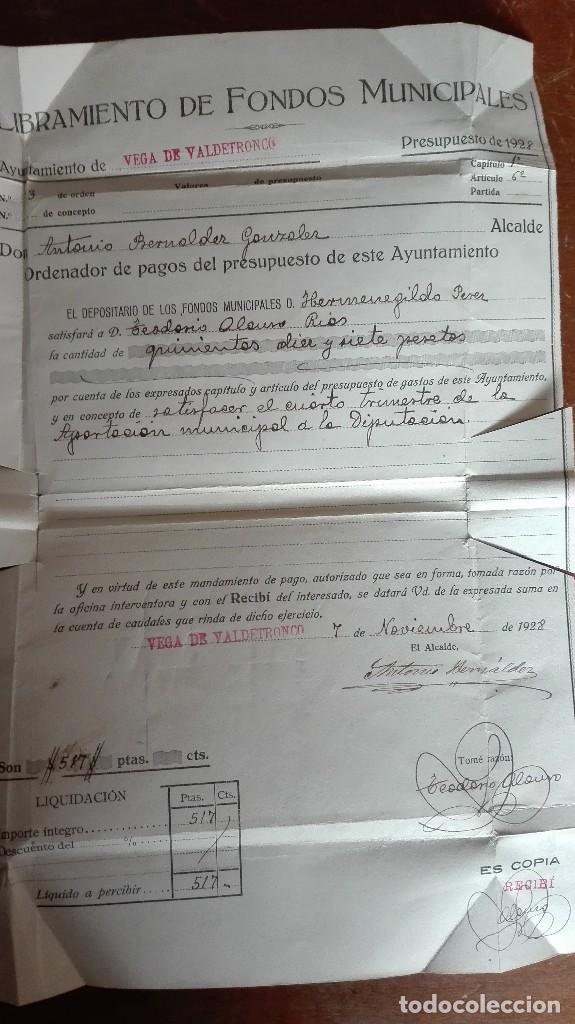 LIBRAMIENTO DE FONDOS MUNICIPALES
Ayuntamiento de VEGA DE VALDETRONCO Presupuesto de 1928
N.º 3 de orden Valores de presupuesto Capítulo 1º
N.º de concepto Artículo 6º
Partida
Don Antonio Bernaldez Gonzalez Alcalde
Ordenador de pagos del presupuesto de este Ayuntamiento
EL DEPOSITARIO DE LOS FONDOS MUNICIPALES D. Hermenegildo Perez
satisfará a D. Teodorio Alonso Rios
la cantidad de quinientas diez y siete pesetas
por cuenta de los expresados capítulo y artículo del presupuesto de gastos de este Ayuntamiento,
y en concepto de satisfacer el cuarto trimestre de la
Aportación municipal a la Diputación.
Y en virtud de este mandamiento de pago, autorizado que sea en forma, tomada razón por
la oficina interventora y con el Recibí del interesado, se datará Vd. de la expresada suma en
la cuenta de caudales que rinda de dicho ejercicio.
VEGA DE VALDETRONCO 7 de Noviembre de 1928
El Alcalde,
Antonio Bernáldez
Son 517 ptas. cts.
Tomé razón:
Teodorio Alonso
LIQUIDACIÓN Ptas. Cts.
Importe íntegro 517
Descuento del %
Líquido a percibir 517
ES COPIA
RECIBÍ
Alonso
todocoleccion